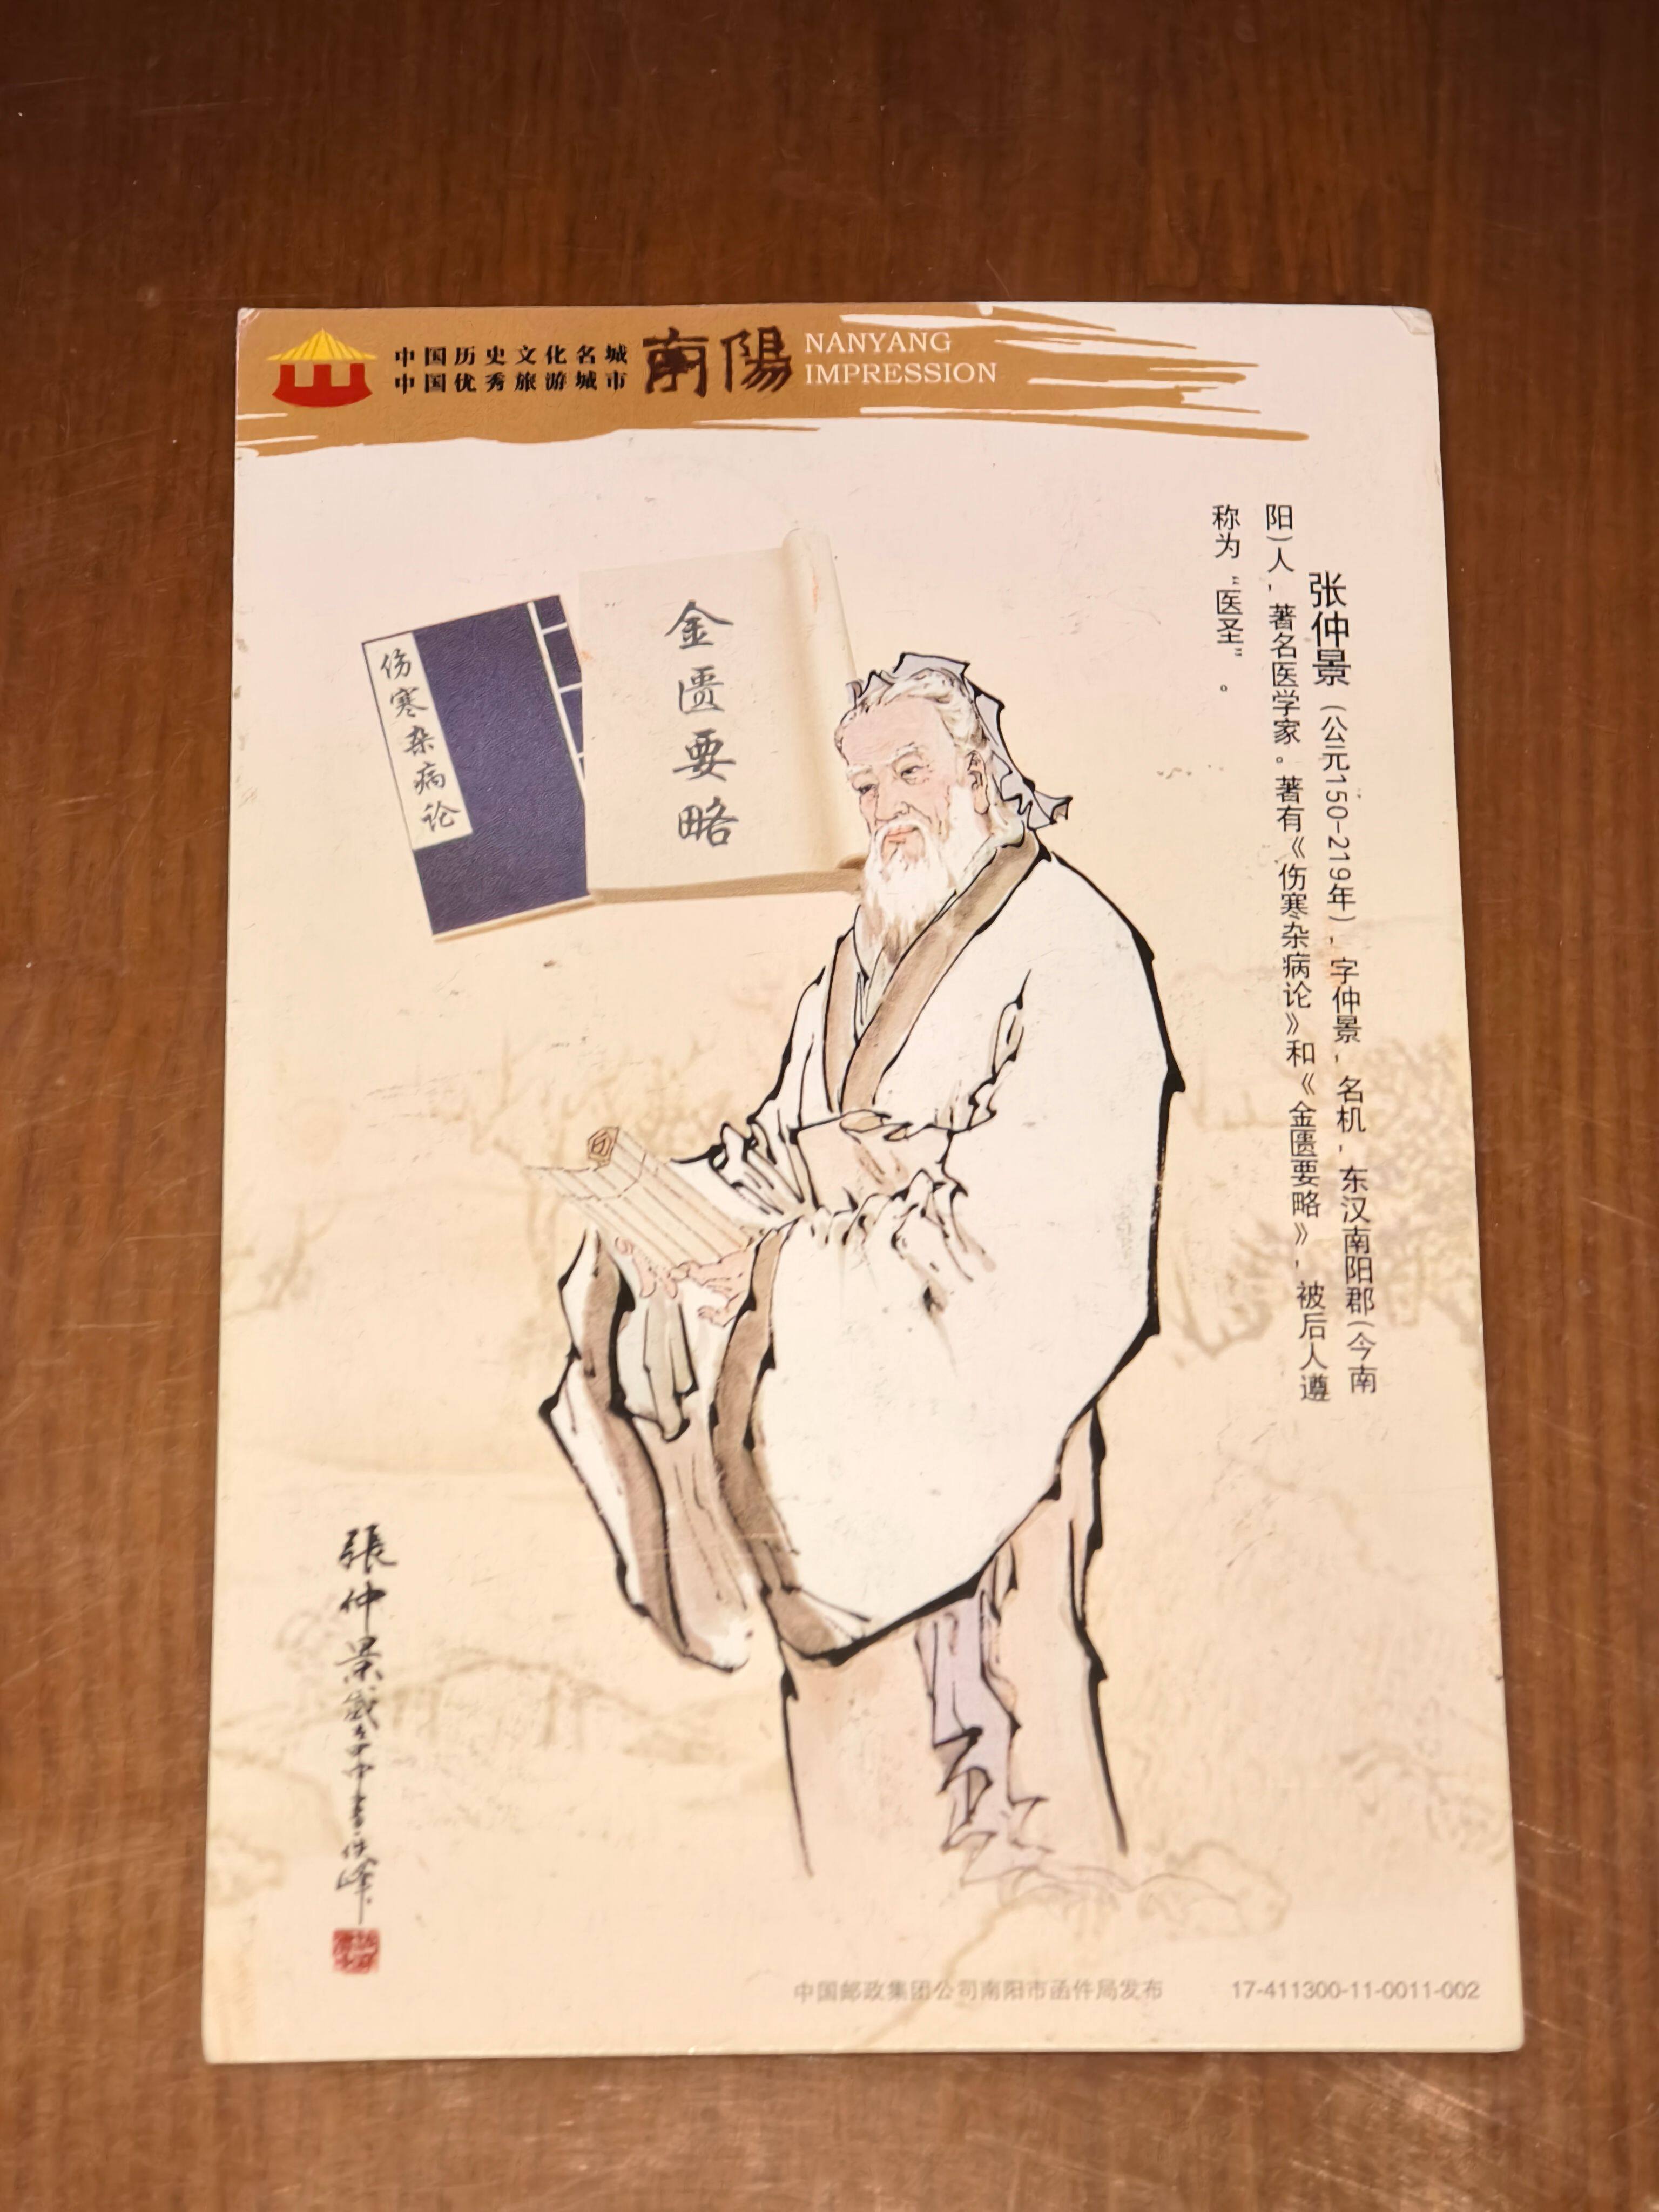 中国历史文化名城
中国优秀旅游城市
南陽
NANYANG
IMPRESSION
张仲景（公元150-219年），字仲景，名机，东汉南阳郡（今南
阳）人，著名医学家。著有《伤寒杂病论》和《金匮要略》，被后人遵
称为“医圣”。
金匮要略
伤寒杂病论
張仲景
中国邮政集团公司南阳市函件局发布
17-411300-11-0011-002